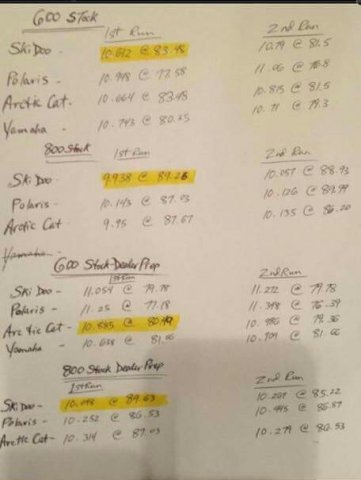 600 Stock
1st Run 2nd Run
Ski Doo - 10.612 @ 83.48 10.79 @ 81.5
Polaris - 10.948 @ 77.58 11.06 @ 76.8
Arctic Cat - 10.664 @ 83.48 10.815 @ 81.5
Yamaha - 10.743 @ 80.35 10.71 @ 79.3
800 Stock 1st Run 2nd Run
Ski Doo - 9.938 @ 89.26 10.057 @ 88.93
Polaris - 10.143 @ 87.93 10.126 @
Arctic Cat - 9.95 @ 87.67 10.135 @ 86.20
Yamaha -
600 Stock Dealer Prep
1st Run 2nd Run
Ski Doo - 11.054 @ 79.78 11.272 @ 79.78
Polaris - 11.25 @ 77.18 11.348 @ 76.39
Arctic Cat - 10.885 @ 10.986 @ 79.36
Yamaha - 10.638 @ 81.06 10.709 @ 81.06
800 Stock Dealer Prep
1st Run 2nd Run
Ski Doo - @ 89.63 10.207 @ 85.22
Polaris - 10.252 @ 86.53 10.445 @ 86.87
Arctic Cat - 10.314 @ 87.03 10.279 @ 86.53